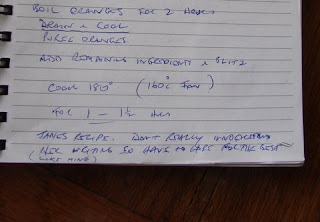 BOIL ORANGES FOR 2 HOURS
DRAIN & COOL
PUREE ORANGES
ADD REMAINING INGREDIENTS & BLITZ
COOK 180° (160° FAN)
FOR 1 — 1½ HRS
JANES RECIPE. DON'T REALLY UNDERSTAND
HER WRITING SO HAVE TO HOPE FOR THE BEST
(LIKE MINE)